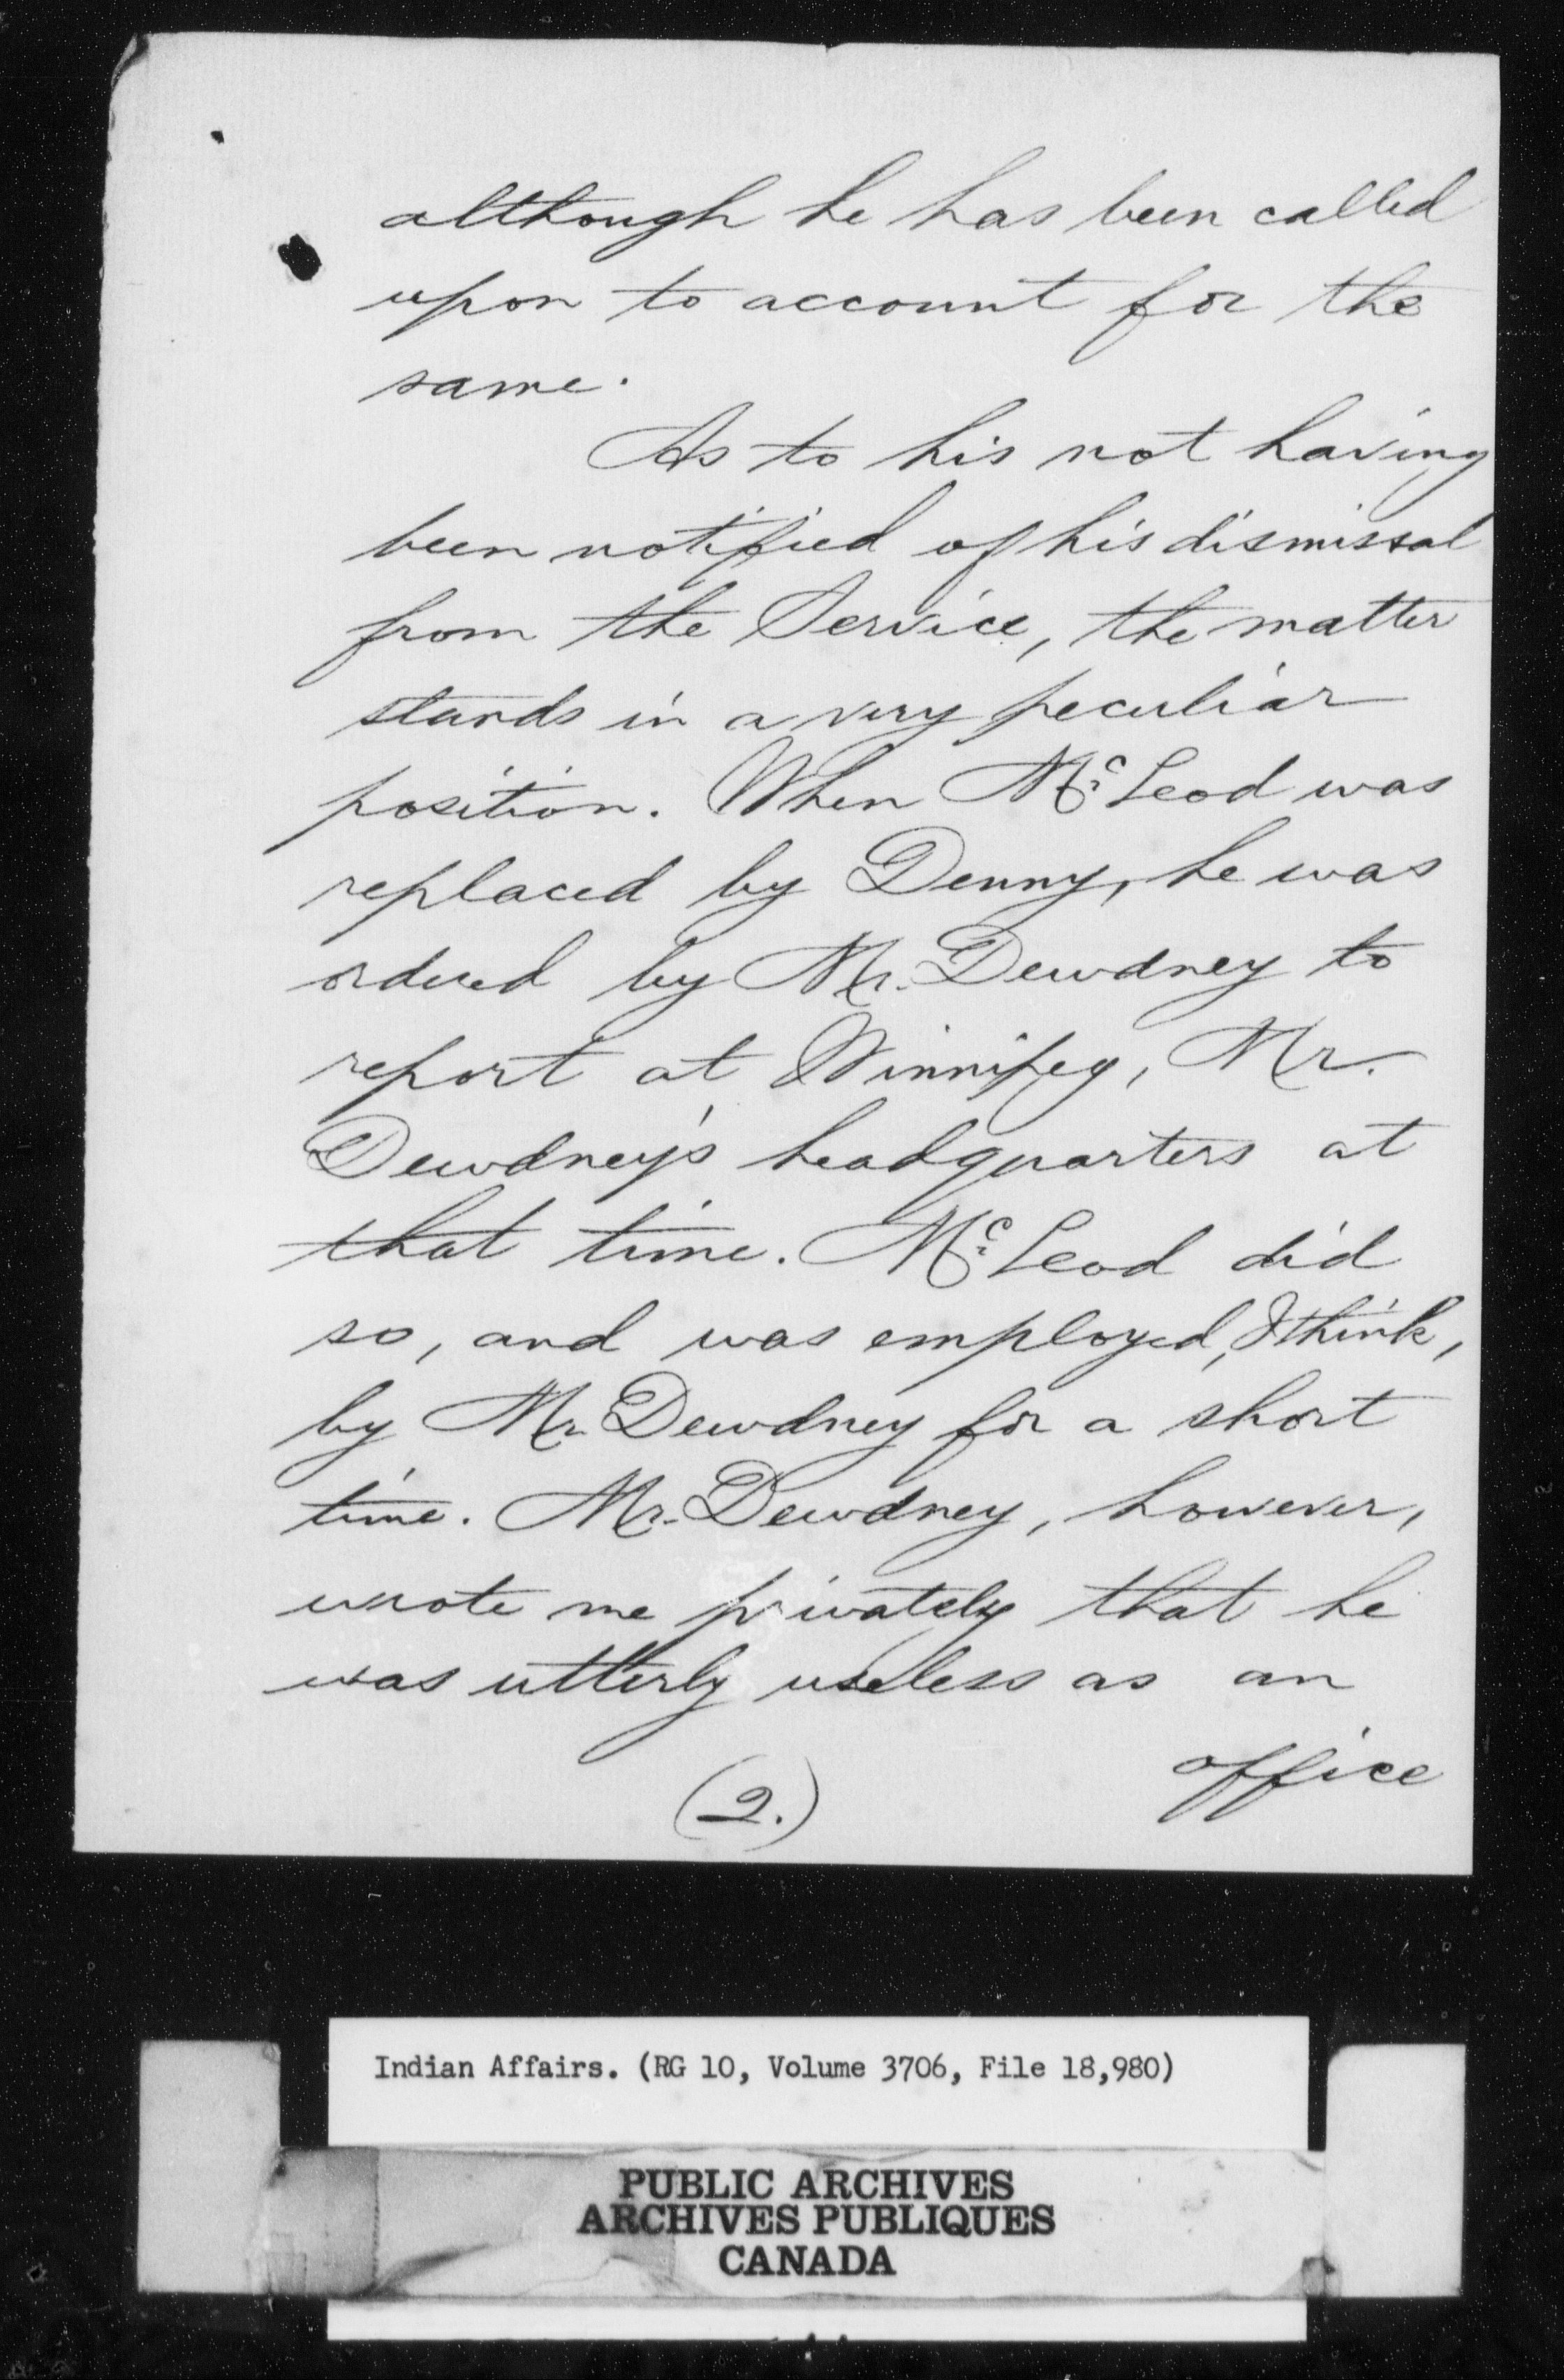 although he has been called
upon to account for the
same.
As to his not having
been notified of his dismissal
from the Service, the matter
stands in a very peculiar
position. When McLeod was
replaced by Denny, he was
ordered by Mr. Dewdney to
report at Winnipeg, Mr.
Dewdney's headquarters at
that time. McLeod did
so, and was employed, I think,
by Mr. Dewdney for a short
time. Mr. Dewdney, however,
wrote me privately that he
was utterly useless as an
office
(2.)
Indian Affairs. (RG 10, Volume 3706, File 18,980)
PUBLIC ARCHIVES
ARCHIVES PUBLIQUES
CANADA